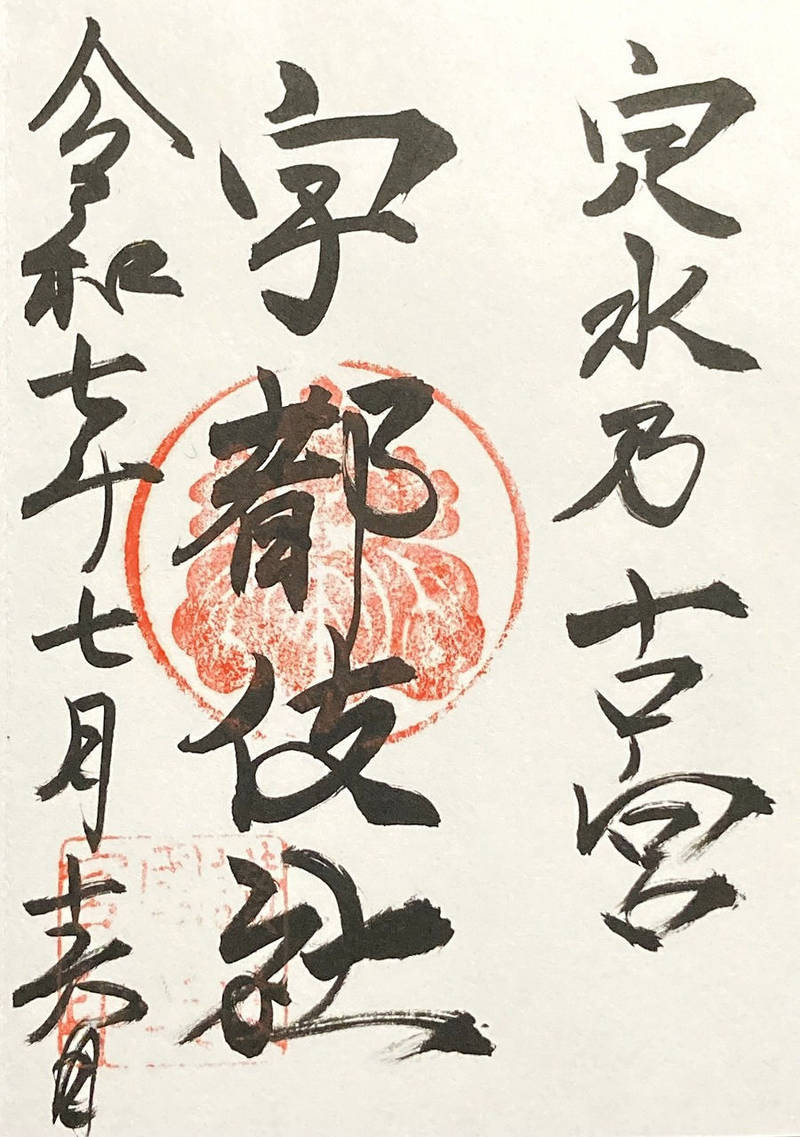 水乃古宮
宇都伎社
令和七年七月十六日